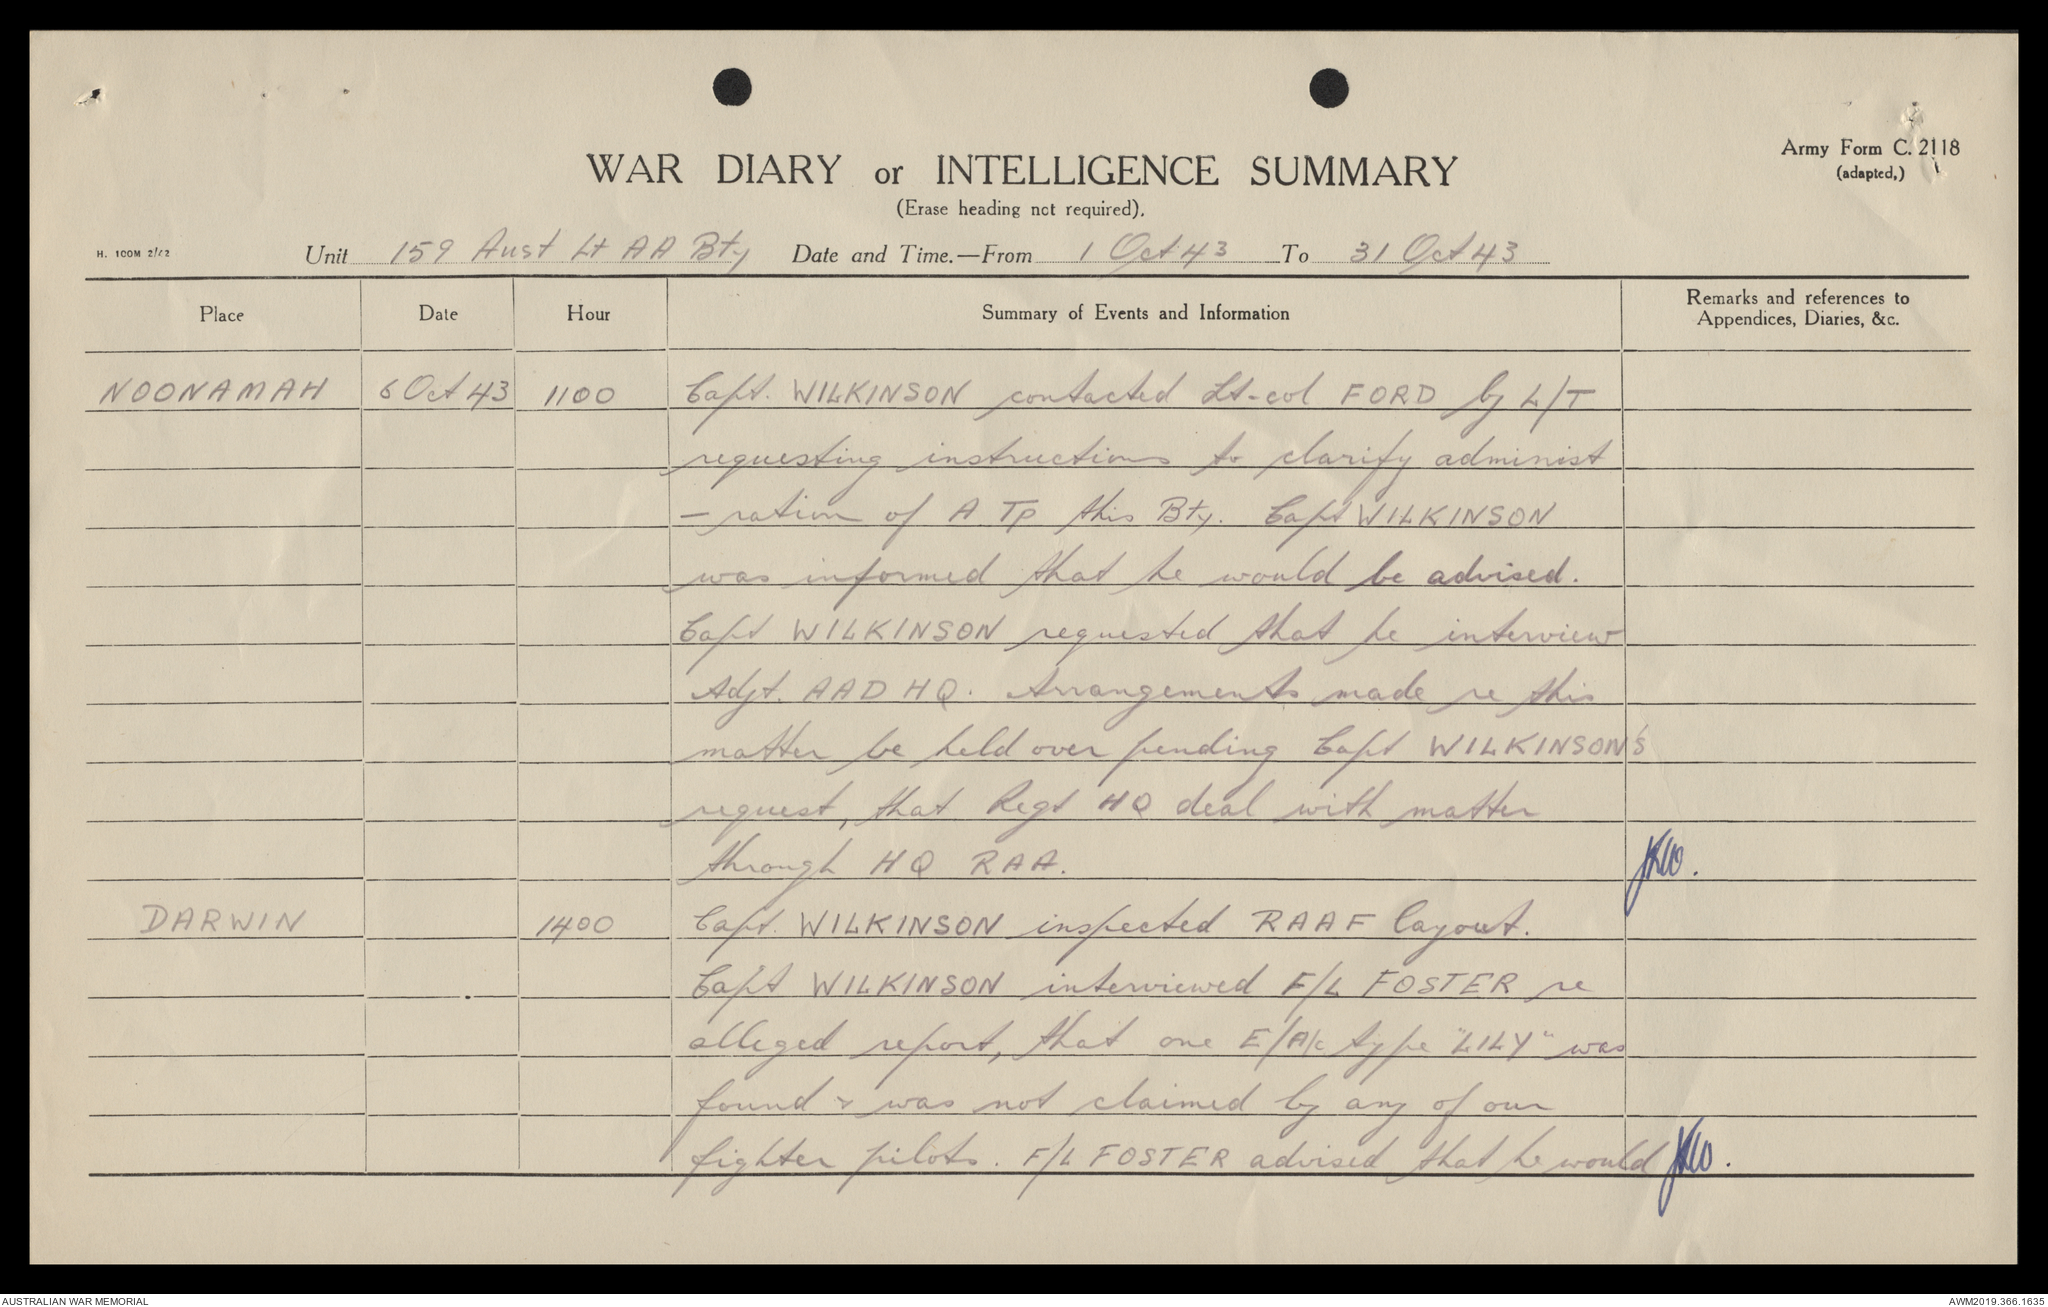 WAR DIARY or INTELLIGENCE SUMMARY
Army Form C. 2118
(adapted,)
(Erase heading not required).
H. 100M 2/42
Unit 159 Aust Lt AA Bty Date and Time.—From 1 Oct 43 To 31 Oct 43
Place Date Hour Summary of Events and Information Remarks and references to
Appendices, Diaries, &c.
NOONAMAH 6 Oct 43 1100 Capt. WILKINSON contacted Lt-col FORD by L/T
requesting instructions to clarify administ
- ration of A Tp this Bty. Capt WILKINSON
was informed that he would be advised.
Capt WILKINSON requested that he interview
Adjt. AAD HQ. Arrangements made re this
matter be held over pending Capt WILKINSON's
request, that Regt HQ deal with matter
through HQ RAA.
DARWIN 1400 Capt. WILKINSON inspected RAAF layout.
Capt WILKINSON interviewed F/L FOSTER re
alleged report, that one E/A/c type "LILY" was
found & was not claimed by any of our
fighter pilots. F/L FOSTER advised that he would
AUSTRALIAN WAR MEMORIAL
AWM2019.366.1635